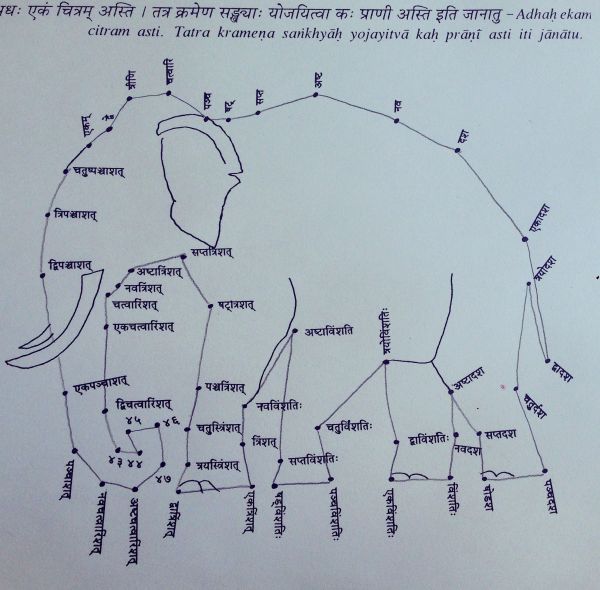 धः एकं चित्रम् अस्ति । तत्र क्रमेण सङ्ख्याः योजयित्वा कः प्राणी अस्ति इति जानातु – Adhaḥ ekam
citram asti. Tatra krameṇa saṅkhyāḥ yojayitvā kaḥ prāṇī asti iti jānātu.
एकम्
द्वे
त्रीणि
चत्वारि
पञ्च
षट्
सप्त
अष्ट
नव
दश
चतुष्पञ्चाशत्
त्रिपञ्चाशत्
एकादश
सप्तत्रिंशत्
द्विपञ्चाशत्
अष्टात्रिंशत्
त्रयोदश
नवत्रिंशत्
चत्वारिंशत्
षट्त्रिंशत्
एकचत्वारिंशत्
अष्टाविंशति
त्रयोविंशतिः
द्वादश
एकपञ्चाशत्
पञ्चत्रिंशत्
अष्टादश
चतुर्दश
द्विचत्वारिंशत्
नवविंशतिः
४५
४६
चतुस्त्रिंशत्
चतुर्विंशतिः
त्रिंशत्
द्वाविंशतिः
सप्तदश
नवदश
४३ ४४
४७
त्रयस्त्रिंशत्
सप्तविंशतिः
पञ्चाशद्
नवचत्वारिंशद्
अष्टचत्वारिंशद्
द्वात्रिंशद्
एकत्रिंशद्
षड्विंशतिः
पञ्चविंशतिः
एकविंशतिः
विंशतिः
षोडश
पञ्चदश